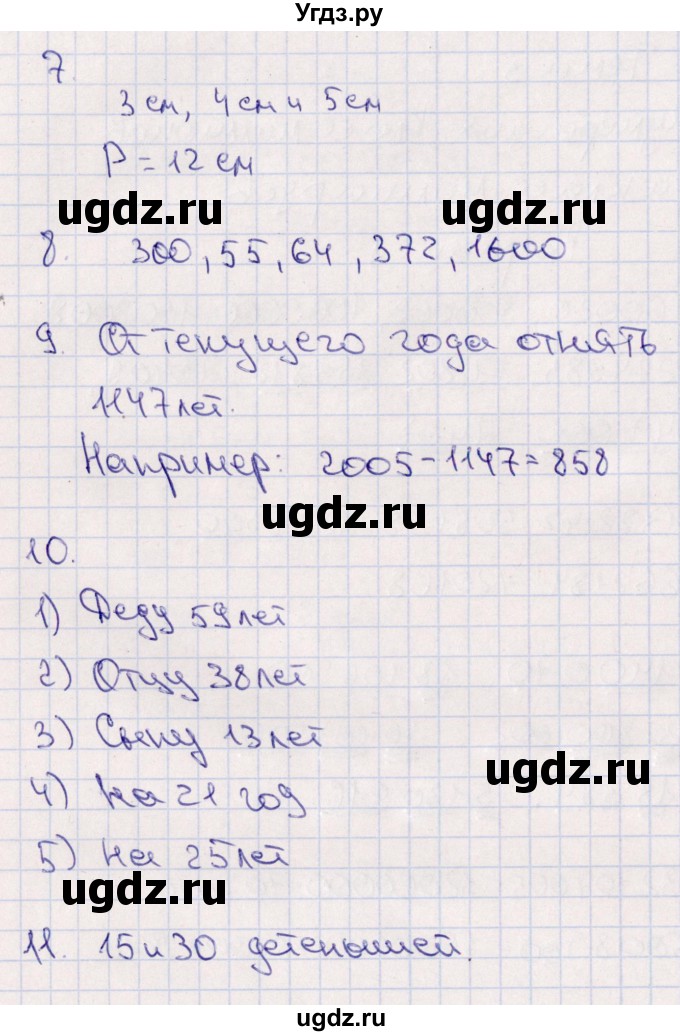 Угдз.ру
7
3 см, 4 см и 5 см
P = 12 см
ugdz.ru ugdz.ru
8. 300, 55, 64, 372, 1600
9. От текущего года отнять
1147 лет.
Например: 2005 - 1147 = 858
ugdz.ru
10.
1) Деду 59 лет
2) Отцу 38 лет
3) Сыну 13 лет
ugdz.ru
4) На 21 год
5) На 25 лет
ugdz.ru
11. 15 и 30 детенышей.
ugdz.ru